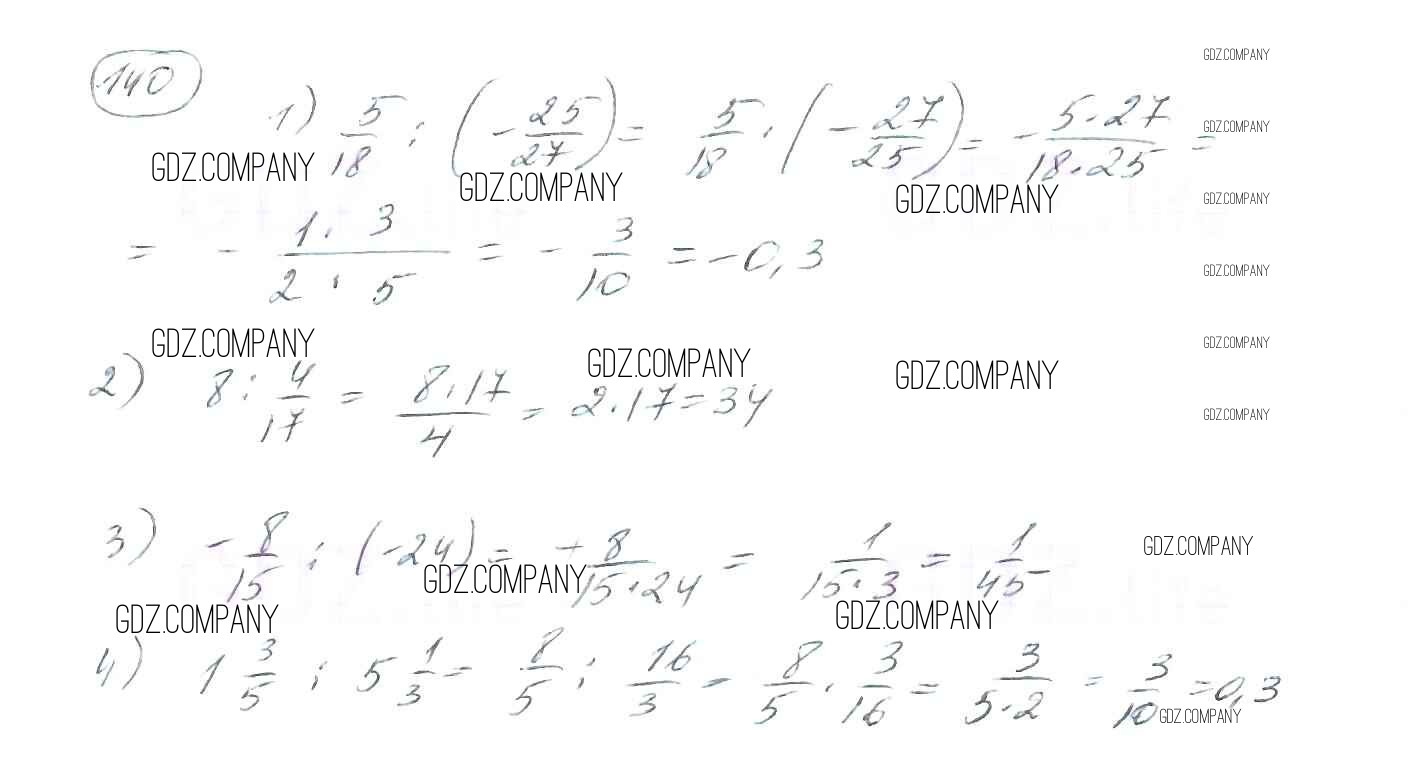 140
GDZ.COMPANY
1) 5/18 : (-25/27) = 5/18 · (-27/25) = - 5·27/18·25 =
GDZ.COMPANY
GDZ.COMPANY GDZ.COMPANY GDZ.COMPANY
GDZ.COMPANY
= - 1·3/2·5 = - 3/10 = -0,3
GDZ.COMPANY
GDZ.COMPANY GDZ.COMPANY GDZ.COMPANY GDZ.COMPANY
2) 8 : 4/17 = 8·17/4 = 2·17 = 34
GDZ.COMPANY
3) - 8/15 : (-24) = + 8/15·24 = 1/15·3 = 1/45
GDZ.COMPANY
GDZ.COMPANY GDZ.COMPANY GDZ.COMPANY
4) 1 3/5 : 5 1/3 = 8/5 : 16/3 = 8/5 · 3/16 = 3/5·2 = 3/10 = 0,3
GDZ.COMPANY